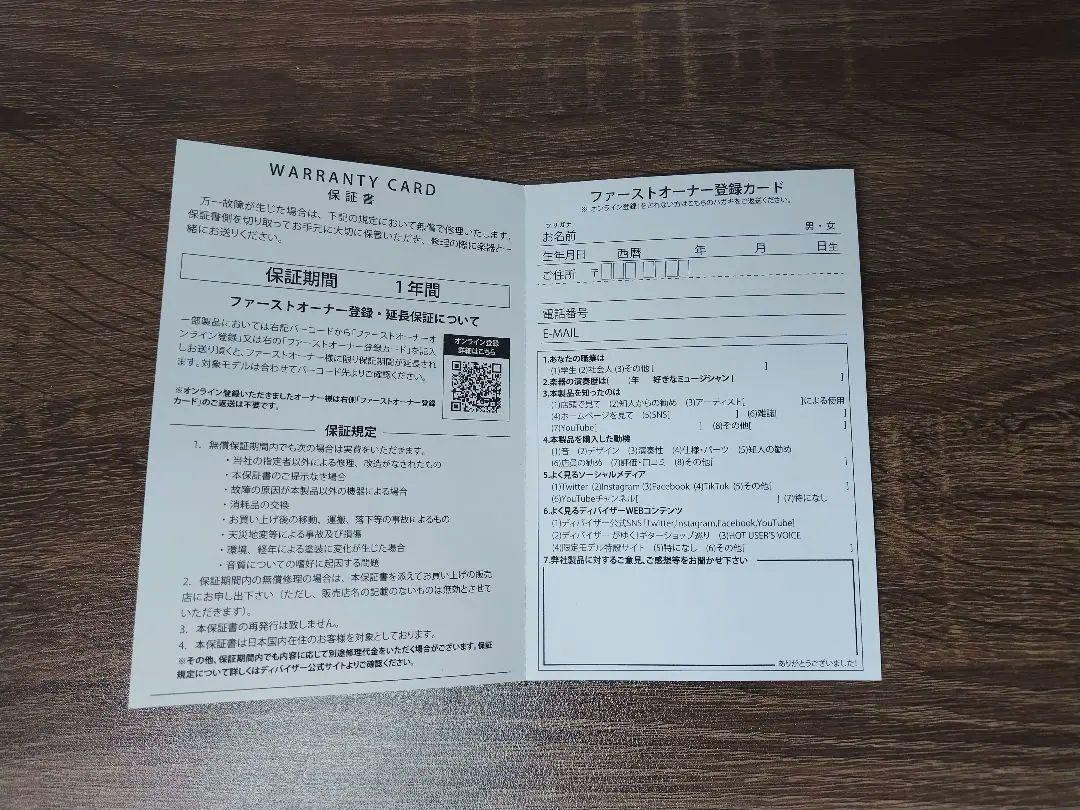 WARRANTY CARD
保証書
万一故障が生じた場合は、下記の規定において無償で修理いたします。
保証書側を切り取ってお手元に大切に保管いただき、修理の際に楽器と一
緒にお送りください。
保証期間 1年間
ファーストオーナー登録・延長保証について
一部製品においては右記バーコードから「ファーストオーナーオ
ンライン登録」又は右の「ファーストオーナー登録カード」を記入
しお送り頂くと、ファーストオーナー様に限り保証期間が延長されま
す。対象モデルは合わせてバーコード先よりご確認ください。
オンライン登録
詳細はこちら
※オンライン登録いただきましたオーナー様は右側「ファーストオーナー登録
カード」のご返送は不要です。
保証規定
1. 無償保証期間内でも次の場合は実費をいただきます。
・当社の指定者以外による修理、改造がなされたもの
・本保証書のご提示なき場合
・故障の原因が本製品以外の機器による場合
・消耗品の交換
・お買い上げ後の移動、運搬、落下等の事故によるもの
・天災地変等による事故及び損傷
・環境、経年による塗装に変化が生じた場合
・音質についての嗜好に起因する問題
2. 保証期間内の無償修理の場合は、本保証書を添えてお買い上げの販売
店にお申し出下さい（ただし、販売店名の記載のないものは無効とさせて
いただきます）。
3. 本保証書の再発行は致しません。
4. 本保証書は日本国内在住のお客様を対象としております。
※その他、保証期間内でも内容に応じて別途修理代金をいただく場合がございます。保証
規定について詳しくはディバイザー公式サイトよりご確認ください。
ファーストオーナー登録カード
※ オンライン登録をされない方はこちらのハガキをご返送ください。
フリガナ
お名前 男・女
生年月日 西暦 年 月 日生
ご住所 〒
電話番号
E-MAIL
1.あなたの職業は
(1)学生 (2)社会人 (3)その他[ ]
2.楽器の演奏歴は( )年 好きなミュージシャン[ ]
3.本製品を知ったのは
(1)店頭で見て (2)知人からの勧め (3)アーティスト[ ]による使用
(4)ホームページを見て (5)SNS[ ] (6)雑誌[ ]
(7)YouTube[ ] (8)その他[ ]
4.本製品を購入した動機
(1)音 (2)デザイン (3)演奏性 (4)仕様・パーツ (5)知人の勧め
(6)店員の勧め (7)評価・口コミ (8)その他[ ]
5.よく見るソーシャルメディア
(1)Twitter (2)Instagram (3)Facebook (4)TikTok (5)その他[ ]
(6)YouTubeチャンネル[ ] (7)特になし
6.よく見るディバイザーWEBコンテンツ
(1)ディバイザー公式SNS[Twitter,Instagram,Facebook,YouTube]
(2)ディバイザーがゆく!ギターショップ巡り (3)HOT USER'S VOICE
(4)限定モデル特設サイト (5)特になし (6)その他[ ]
7.弊社製品に対するご意見、ご感想等をお聞かせ下さい
ありがとうございました!